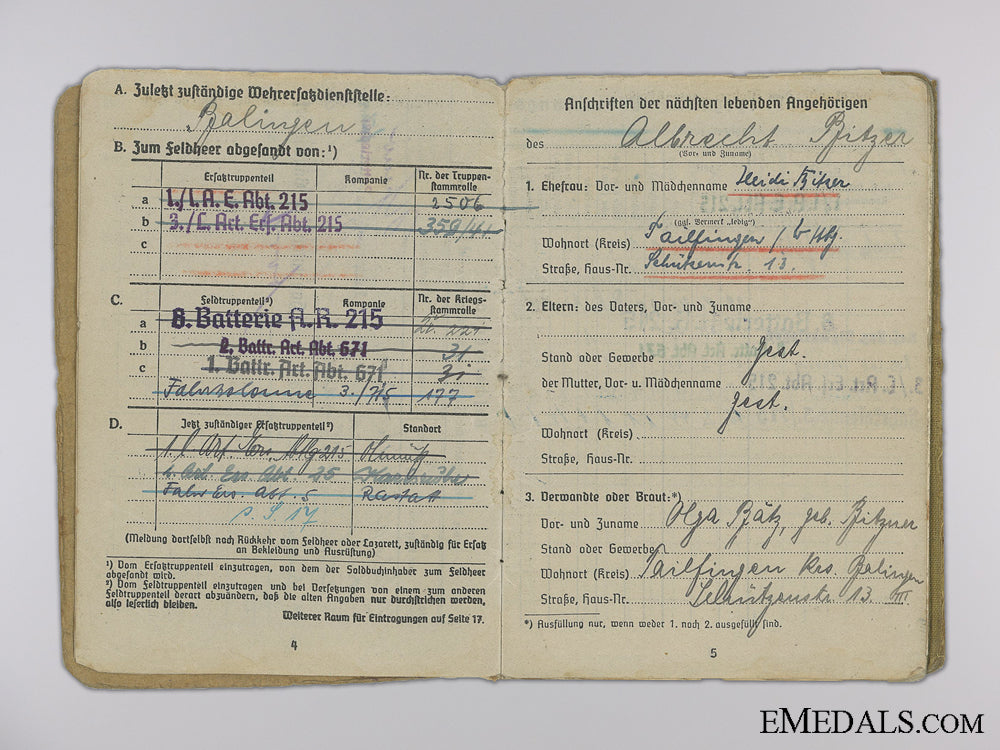 A. Zuletzt zuständige Wehrersatzdienststelle:
Balingen
B. Zum Feldheer abgesandt von:¹)
Ersatztruppenteil Kompanie Nr. der Truppenstammrolle
a 1./l. A. E. Abt. 215 2506
b 3./L. Art. Ers. Abt. 215 359/41
c
C. Feldtruppenteil²) Kompanie Nr. der Kriegsstammrolle
a 8. Batterie A. R. 215
b 2. Battr. Art. Abt. 671 31
c 1. Battr. Art. Abt. 671 31
Fahrkolonne 3./715 177
D. Jetzt zuständiger Ersatztruppenteil²) Standort
1. l. Art. Ers. Abtlg 215
l. Art. Ers. Abt. 25
Fahr Ers. Abt. 5 Rastatt
(Meldung dortselbst nach Rückkehr vom Feldheer oder Lazarett, zuständig für Ersatz
an Bekleidung und Ausrüstung)
¹) Vom Ersatztruppenteil einzutragen, von dem der Soldbuchinhaber zum Feldheer
abgesandt wird.
²) Vom Feldtruppenteil einzutragen und bei Versetzungen von einem zum anderen
Feldtruppenteil derart abzuändern, daß die alten Angaben nur durchstrichen werden,
also leserlich bleiben.
Weiterer Raum für Eintragungen auf Seite 17.
4
Anschriften der nächsten lebenden Angehörigen
des Albrecht Bitzer
(Vor- und Zuname)
1. Ehefrau: Vor- und Mädchenname Heidi Bitzer
(ggf. Vermerk „ledig")
Wohnort (Kreis) Tailfingen
Straße, Haus-Nr. Schützenstr. 13.
2. Eltern: des Vaters, Vor- und Zuname
Stand oder Gewerbe gest.
der Mutter, Vor- u. Mädchenname
gest.
Wohnort (Kreis)
Straße, Haus-Nr.
3. Verwandte oder Braut:*)
Vor- und Zuname Olga Bätz, geb. Bitzner
Stand oder Gewerbe
Wohnort (Kreis) Tailfingen Krs. Balingen
Straße, Haus-Nr. Schützenstr. 13 III
*) Ausfüllung nur, wenn weder 1. noch 2. ausgefüllt sind.
5
EMEDALS.COM